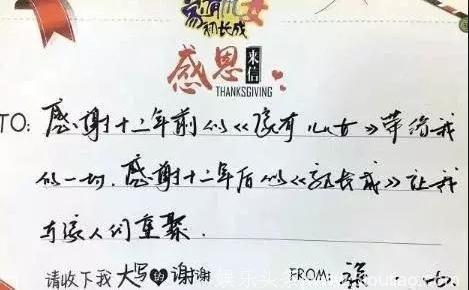 家有儿女
初长成
感恩来信
THANKSGIVING
TO: 感谢十二年前的《家有儿女》带给我
的一切,感谢十二年后的《初长成》让我
与家人们重聚.
请收下我大写的谢谢 FROM: